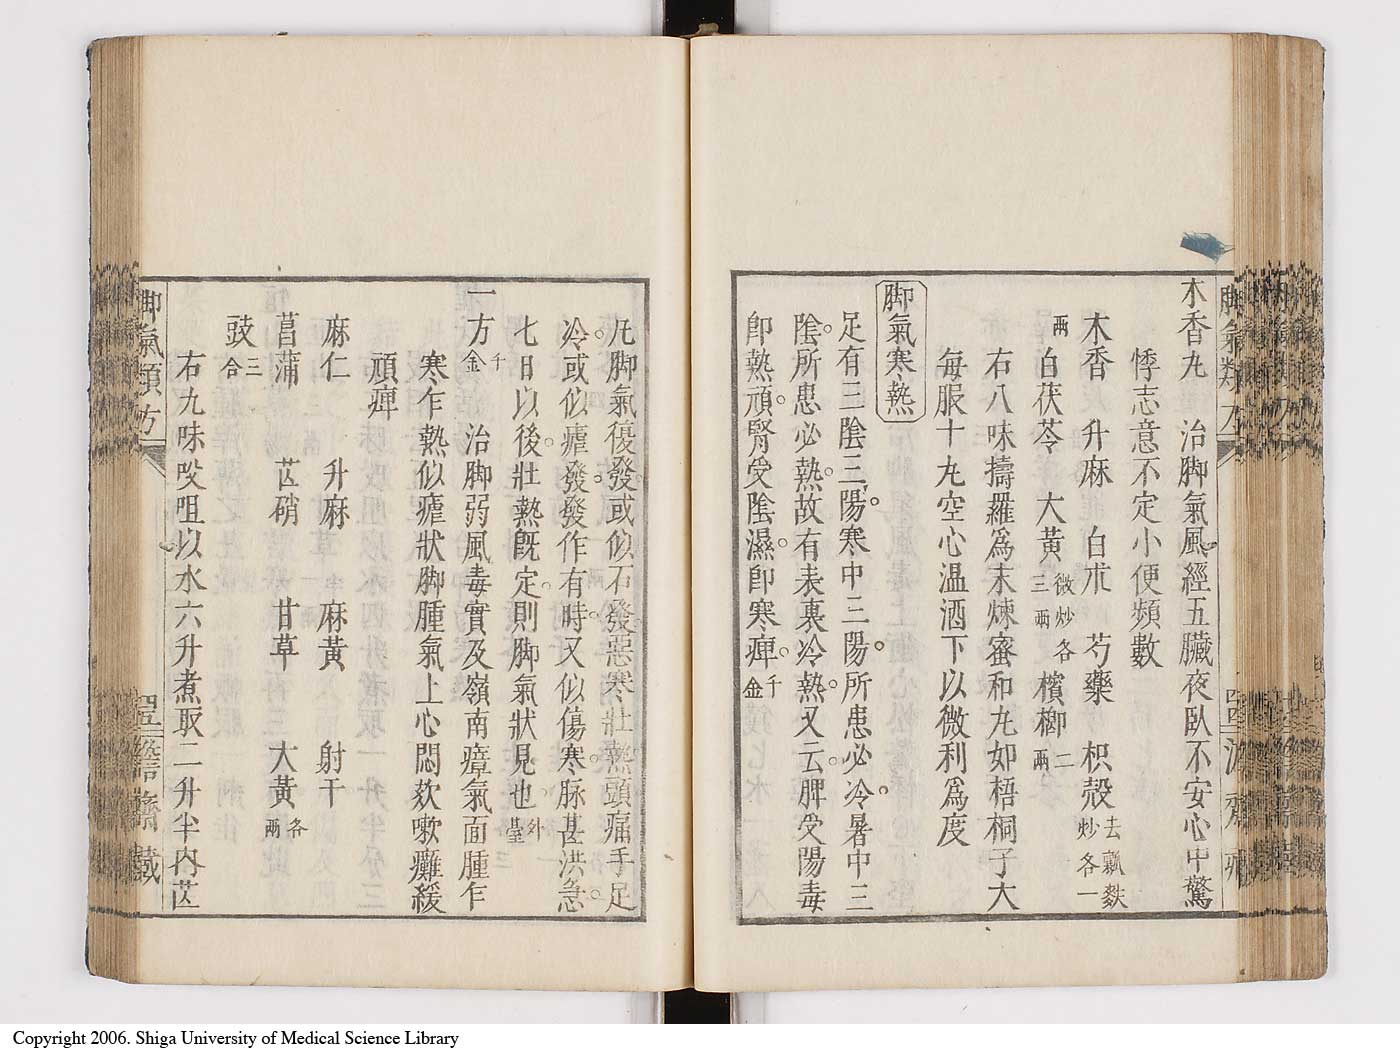 木香丸　治脚氣風經五臓夜臥不安心中驚
悸志意不定小便頻數
木香　升麻　白朮　芍藥　枳殻去瓤麩炒各一
兩　白茯苓　大黃微炒各三兩　檳榔二兩
右八味擣羅爲末煉蜜和丸如梧桐子大
每服十丸空心温酒下以微利爲度
脚氣寒熱
足有三陰三陽寒中三陽所患必冷暑中三
陰所患必熱故有表裏冷熱又云脾受陽毒
卽熱頑腎受陰濕卽寒痺千金
凡脚氣復發或似石發惡寒壯熱頭痛手足
冷或似瘧發發作有時又似傷寒脉甚洪急
七日以後壯熱旣定則脚氣狀見也外臺
一方千金　治脚弱風毒實及嶺南瘴氣面腫乍
寒乍熱似瘧狀脚腫氣上心悶欬嗽癱緩
頑痺
麻仁　升麻　麻黃　射干
菖蒲　芒硝　甘草　大黃各兩
豉三合
右九味㕮咀以水六升煮取二升半內芒
脚氣類方
脚氣類方
Copyright 2006. Shiga University of Medical Science Library